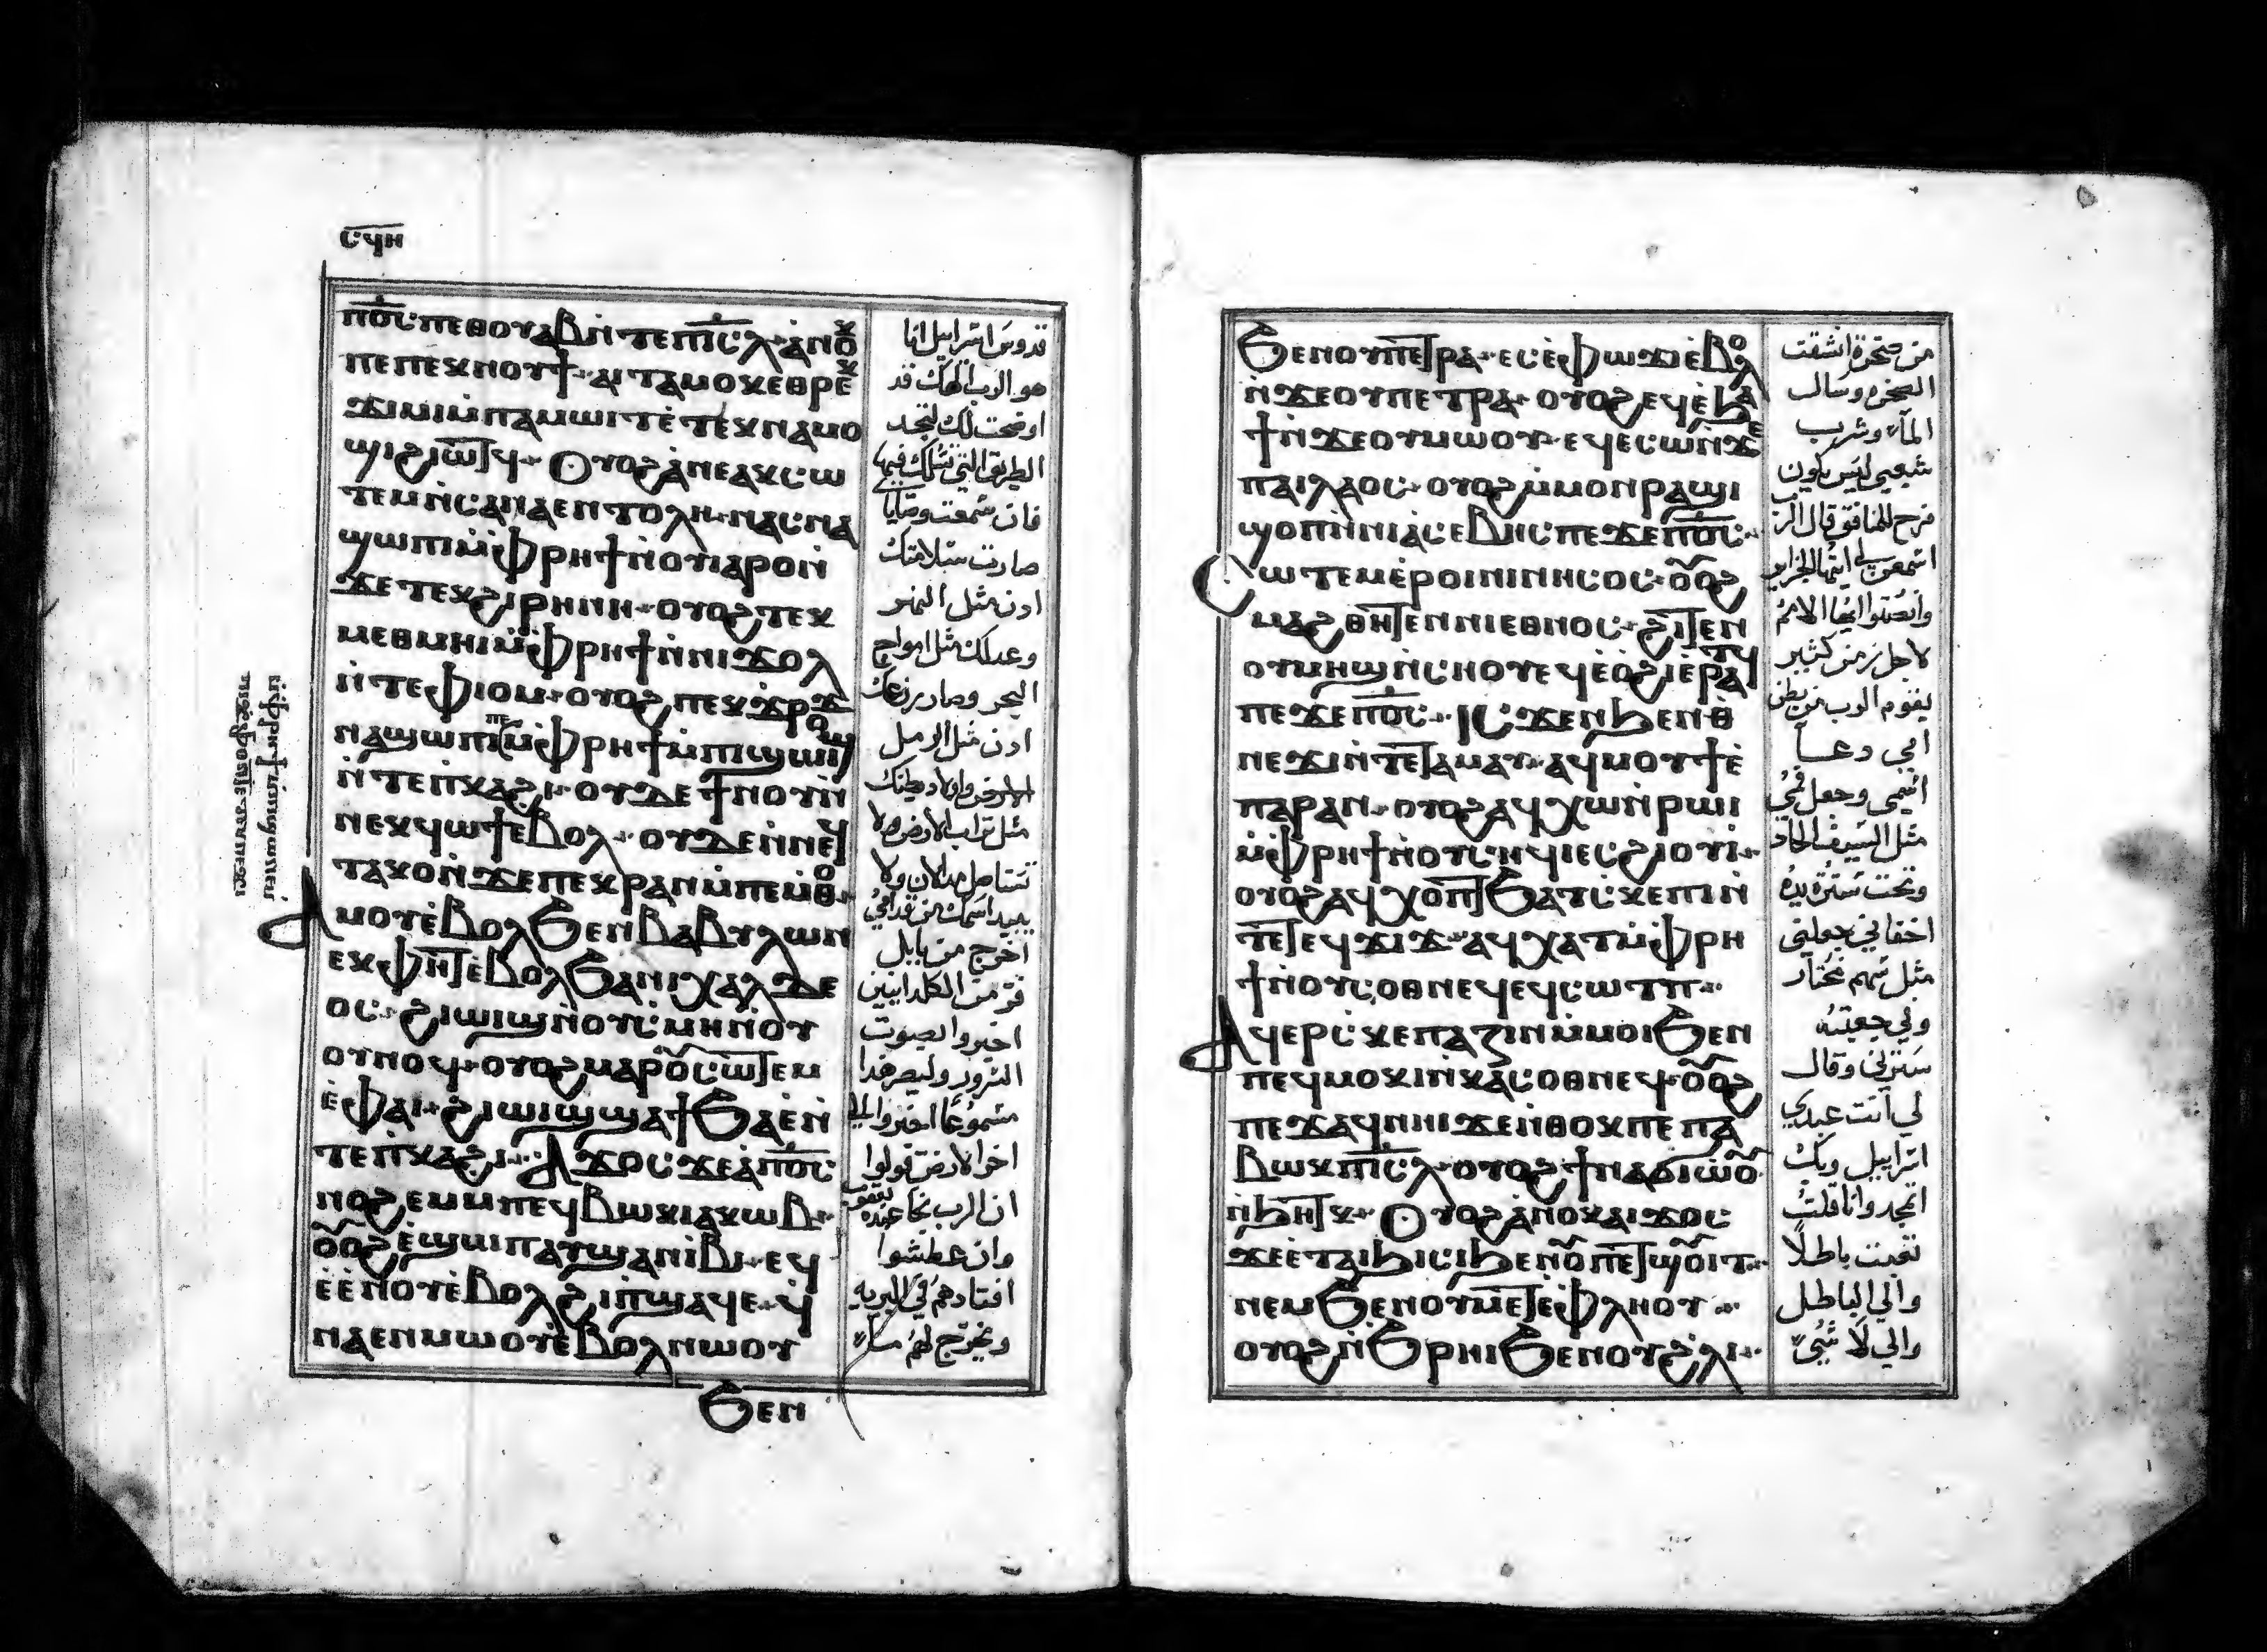 ⲤϤⲎ
ⲠϬⲤ ⲠⲈⲐⲞⲨⲀⲂ ⲚⲦⲈ ⲠⲒⲤⲖ· ⲀⲚⲞⲬ
ⲠⲈ ⲠⲈⲬⲚⲞⲨϮ· ⲀⲒⲦⲀⲘⲞⲬ ⲈⲐⲢⲈⲬ
ϪⲒⲘⲒ ⲘⲠⲀⲘⲰⲒⲦ ⲈⲦⲈⲬⲚⲀⲘⲞ
ϢⲒ ϨⲒⲰⲦϤ· ⲞⲨⲞϨ ⲀⲚⲈ ⲀⲬⲤⲰ
ⲦⲈⲘ ⲚⲤⲀ ⲚⲀⲈⲚⲦⲞⲖⲎ· ⲚⲀⲤⲚⲀ
ϢⲰⲠⲒ ⲘⲪⲢⲎϮ ⲚⲞⲨⲒⲀⲢⲞ Ⲛ
ϪⲈ ⲦⲈⲬϨⲒⲢⲎⲚⲎ· ⲞⲨⲞϨ ⲦⲈⲬ
ⲘⲈⲐⲘⲎⲒ ⲘⲪⲢⲎϮ ⲚⲚⲒϪⲞⲖ
ⲚⲦⲈ ⲪⲒⲞⲘ· ⲞⲨⲞϨ ⲠⲈⲬϪⲢⲞϪ
ⲚⲀϢⲰⲠⲒ ⲘⲪⲢⲎϮ ⲘⲠⲒϢⲰ
ⲚⲦⲈ ⲠⲔⲀϨⲒ· ⲞⲨⲆⲈ ϮⲚⲞⲨ Ⲛ
ⲚⲈⲬϤⲰϮ ⲈⲂⲞⲖ· ⲞⲨⲆⲈ ⲚⲚⲈϤ
ⲦⲀⲔⲞ ⲚϪⲈ ⲠⲈⲬⲢⲀⲚ ⲘⲠⲈⲘⲐⲞ·
ⲀⲘⲞⲨ ⲈⲂⲞⲖ ϦⲈⲚ ⲂⲀⲂⲨⲖⲰⲚ
ⲈⲬⲪⲎⲦ ⲈⲂⲞⲖ ϦⲀ ⲚⲒⲬⲀⲖⲆⲈ
ⲞⲤ· ϨⲒⲰⲒϢ ⲚⲞⲨⲤⲘⲎ ⲚⲞⲨ
ⲞⲨⲚⲞϤ· ⲞⲨⲞϨ ⲘⲀⲢⲞⲨⲤⲰⲦⲈⲘ
ⲈⲪⲀⲒ· ϨⲒⲰⲒϢ ϢⲀϮϦⲀⲈ Ⲛ
ⲦⲈ ⲠⲔⲀϨⲒ· ⲀϪⲞⲤ ϪⲈ Ⲁ ⲠϬⲤ
ⲚⲞϨⲈⲘ ⲘⲠⲈϤⲂⲰⲔ ⲒⲀⲔⲰⲂ·
ⲞⲨⲞϨ ⲈϢⲰⲠ ⲀⲨϢⲀⲚⲒⲂⲒ· ⲈϤ
ⲈⲈⲚⲞⲨ ⲈⲂⲞⲖ ϨⲒ ⲠϢⲀϤⲈ· Ϥ
ⲚⲀⲈⲚ ⲘⲰⲞⲨ ⲈⲂⲞⲖ ⲚⲰⲞⲨ
ϦⲈⲚ
قدوس اسراييل انا
هو الرب الهك قد
اوضحت لك لتجد
الطريق التي تسلك فيها
فان سمعت وصايا
صارت سلامتك
اذن مثل النهر
وعدلك مثل امواج
البحر وصار زرعك
اذن مثل الرمل
الارض واولاد بطنك
مثل تراب الارض ولا
تستاصل مذ الان ولا
يبيد اسمك من قدامي
اخرج من بابل
فر من الكلدانيين
اخبروا بصوت
السرور وليصر هذا
مسموعًا اخبروا الى
اخر الارض قولوا
ان الرب نجا عبده يعقوب
وان عطشوا
اقتادهم في البريه
ويخرج لهم ماء
ϦⲈⲚ ⲞⲨⲠⲈⲦⲢⲀ· ⲈⲤⲈⲪⲰϪⲒ ⲈⲂⲞⲖ
ⲚϪⲈ ⲞⲨⲠⲈⲦⲢⲀ· ⲞⲨⲞϨ ⲈϤⲈϦⲀ
ϮⲚϪⲈ ⲞⲨⲘⲰⲞⲨ· ⲈϤⲈⲤⲰ ⲚϪⲈ
ⲠⲀⲒⲖⲀⲞⲤ· ⲞⲨⲞϨ ⲘⲘⲞⲚ ⲢⲀϢⲒ
ϢⲞⲠ ⲚⲚⲒⲀⲤⲈⲂⲎⲤ ⲠⲈϪⲈ ⲠϬⲤ·
ⲤⲰⲦⲈⲘ ⲈⲢⲞⲒ ⲚⲒⲚⲎⲤⲞⲤ· ⲞⲨⲞϨ
ⲘⲀϨⲐⲎⲦⲈⲚ ⲚⲒⲈⲐⲚⲞⲤ· ϨⲒⲦⲈⲚ
ⲞⲨⲘⲎϢ ⲚⲤⲎⲞⲨ ⲈϤⲈⲞϨⲒ ⲈⲢⲀⲦϤ
ⲠⲈϪⲈ ⲠϬⲤ· ⲒⲤϪⲈⲚ ϦⲈⲚ Ⲑ
ⲚⲈϪⲒ ⲚⲦⲈ ⲦⲀⲘⲀⲨ· ⲀϤⲘⲞⲨϮ Ⲉ
ⲠⲀⲢⲀⲚ· ⲞⲨⲞϨ ⲀϤⲬⲰ ⲚⲢⲰⲒ
ⲘⲪⲢⲎϮ ⲚⲞⲨⲤⲎϤⲒ ⲈⲤϨⲒⲞⲨⲒ·
ⲞⲨⲞϨ ⲀϤⲬⲞⲠⲦ ϦⲀⲦⲤⲔⲈⲠⲎ Ⲛ
ⲦⲈ ⲦⲈϤϪⲒϪ· ⲀϤⲬⲀⲦ ⲘⲪⲢⲎ
Ϯ ⲚⲞⲨⲤⲞⲐⲚⲈϤ ⲈϤⲤⲰⲦⲠ·
ⲀϤⲈⲢⲤⲔⲈⲠⲀⲌⲒⲚ ⲘⲘⲞⲒ ϦⲈⲚ
ⲠⲈϤⲘⲞⲔⲒ ⲚⲬⲀⲤⲞⲐⲚⲈϤ· ⲞⲨⲞϨ
ⲠⲈϪⲀϤ ⲚⲎⲒ ϪⲈ ⲚⲐⲞⲔ ⲠⲈ ⲠⲀ
ⲂⲰⲔ ⲠⲒⲤⲖ· ⲞⲨⲞϨ ϮⲚⲀϬⲒⲰⲞⲨ
ⲚϦⲎⲦⲔ· ⲞⲨⲞϨ ⲀⲚⲞⲔ ⲀⲒϪⲞⲤ
ϪⲈ ⲈⲦⲀⲒϦⲒⲤⲒ ϦⲈⲚ ⲞⲨⲠⲈⲦϢⲞⲨⲒⲦ·
ⲚⲈⲘ ϦⲈⲚ ⲞⲨⲘⲈⲦⲈⲪⲖⲎⲞⲨ·
ⲞⲨⲞϨ ⲚϦⲢⲎⲒ ϦⲈⲚ ⲞⲨϨⲖⲒ·
من صخرة انشقت
الصخره وسال
الماء وشرب
شعبي ليس يكون
فرح للمنافق قال الرب
اسمعي لي ايتها الجزاير
وانصتوا ايها الامم
لاجل زمن كثير
يقوم الرب من بطن
امي دعا
اسمي وجعل فمي
مثل السيف الحاد
وتحت ستره يده
اخفاني جعلني
مثل سهم مختار
وفي جعبته
سترني وقال
لي انت عبدي
اسراييل وبك
اتمجد وانا قلت
تعبت باطلًا
والي الباطل
والي لا شيء